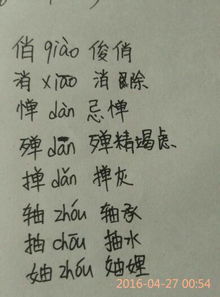 俏 qiào 俊俏
消 xiāo 消除
惮 dàn 忌惮
殚 dān 殚精竭虑
掸 dǎn 掸灰
轴 zhóu 轴承
抽 chōu 抽水
妯 zhóu 妯娌
2016-04-27 00:54